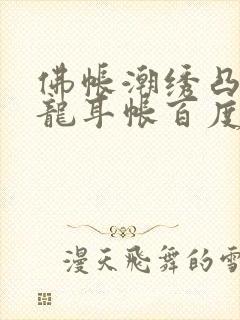 佛帐潮绣凸
龍耳帐百度
漫天飞舞的雪